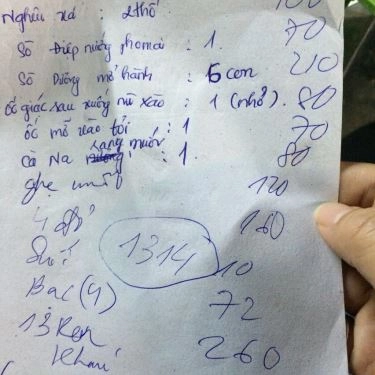 Nghêu xả : 2 thố 100
Sò Điệp nướng phomai : 1. 70
Sò Dương mỡ hành : 6 con 210
ốc giác sau xuống nũ xào : 1 (nhỏ). 80
ốc mỡ xào tỏi : 1 70
Cà Na rang muối : 1. 80
ghẹ 120
4 160
Suối 10
Bac (4) 72
13 Ken 260
Khăn
1314